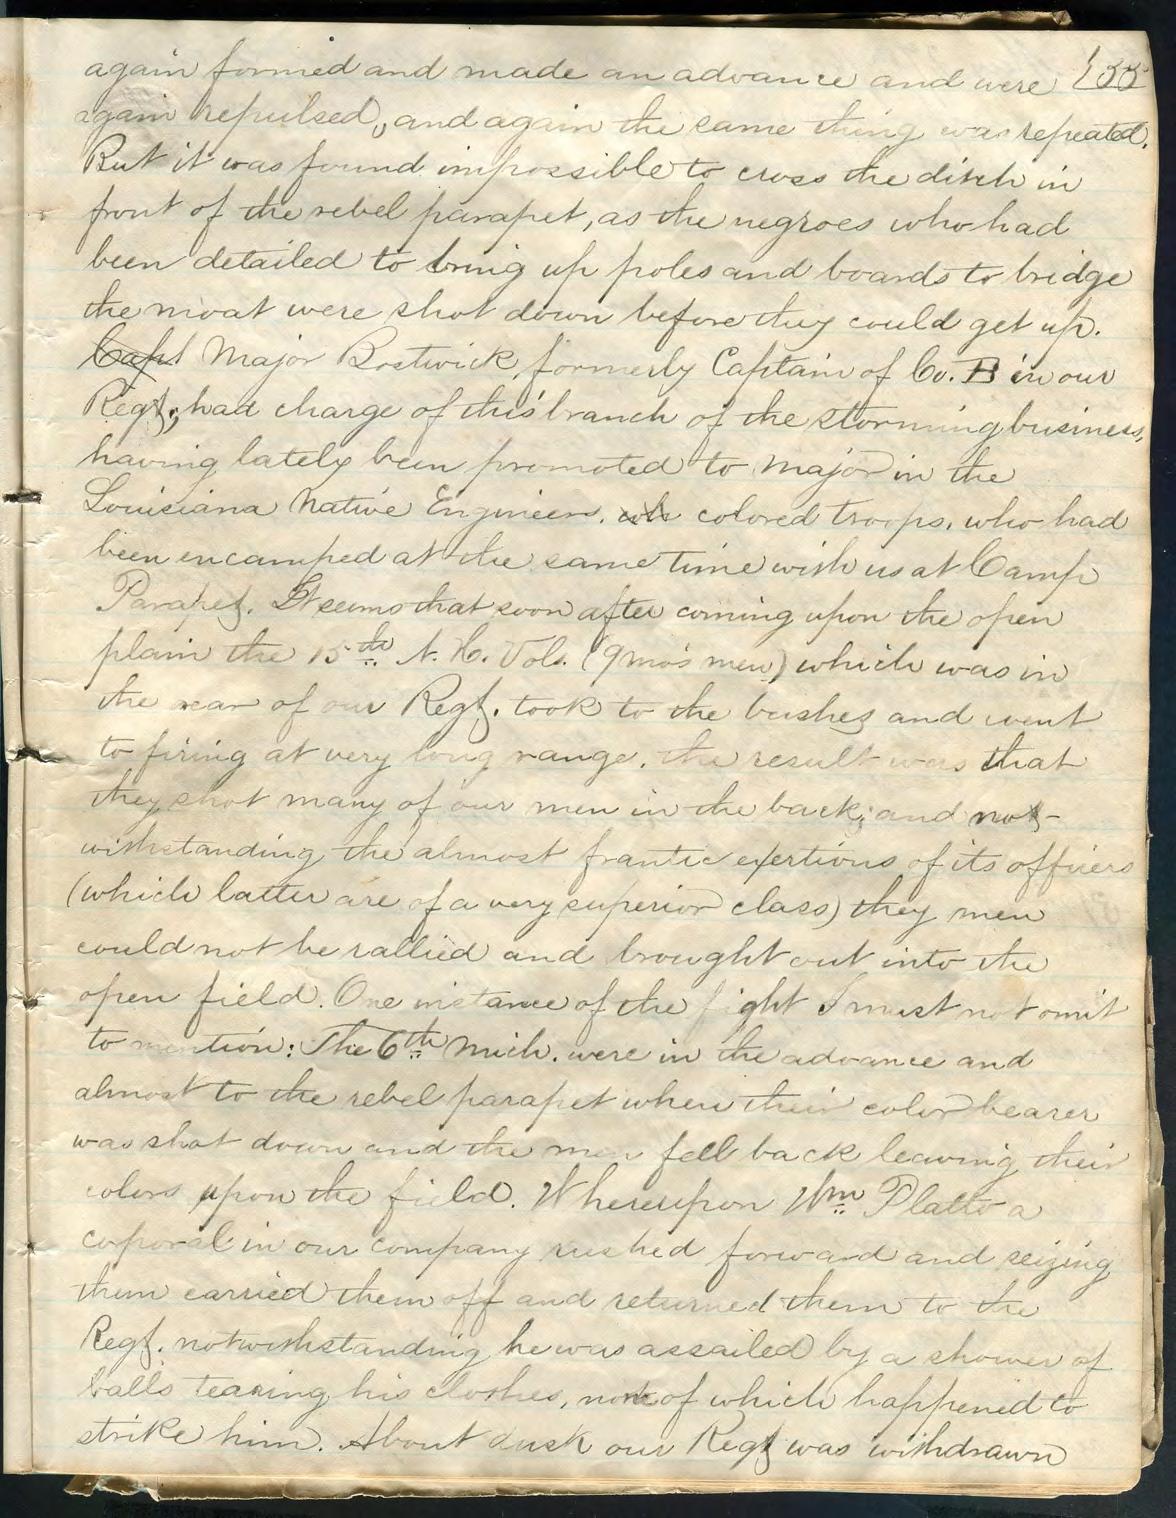 again formed and made an advance and were 133
again repulsed, and again the same thing was repeated.
But it was found impossible to cross the ditch in
front of the rebel parapet, as the negroes who had
been detailed to bring up poles and boards to bridge
the moat were shot down before they could get up.
Capt Major Bostwick, formerly Captain of Co. B in our
Regt, had charge of this branch of the storming business,
having lately been promoted to major in the
Louisiana Native Engineers, wh colored troops, who had
been encamped at the same time with us at Camp
Parapet. It seems that soon after coming upon the open
plain the 15th N. H. Vols. (9 mo's men) which was in
the rear of our Regt. took to the bushes and went
to firing at very long range. the result was that
they shot many of our men in the back; and not-
withstanding the almost frantic exertions of its officers
(which latter are of a very superior class) they men
could not be rallied and brought out into the
open field. One instance of the fight I must not omit
to mention: The 6th Mich. were in the advance and
almost to the rebel parapet when their color bearer
was shot down and the men fell back leaving their
colors upon the field. Whereupon Wm Platto a
corporal in our company rushed forward and seizing
them carried them off and returned them to the
Regt. notwithstanding he was assailed by a shower of
balls tearing his clothes, none of which happened to
strike him. About dusk our Regt was withdrawn